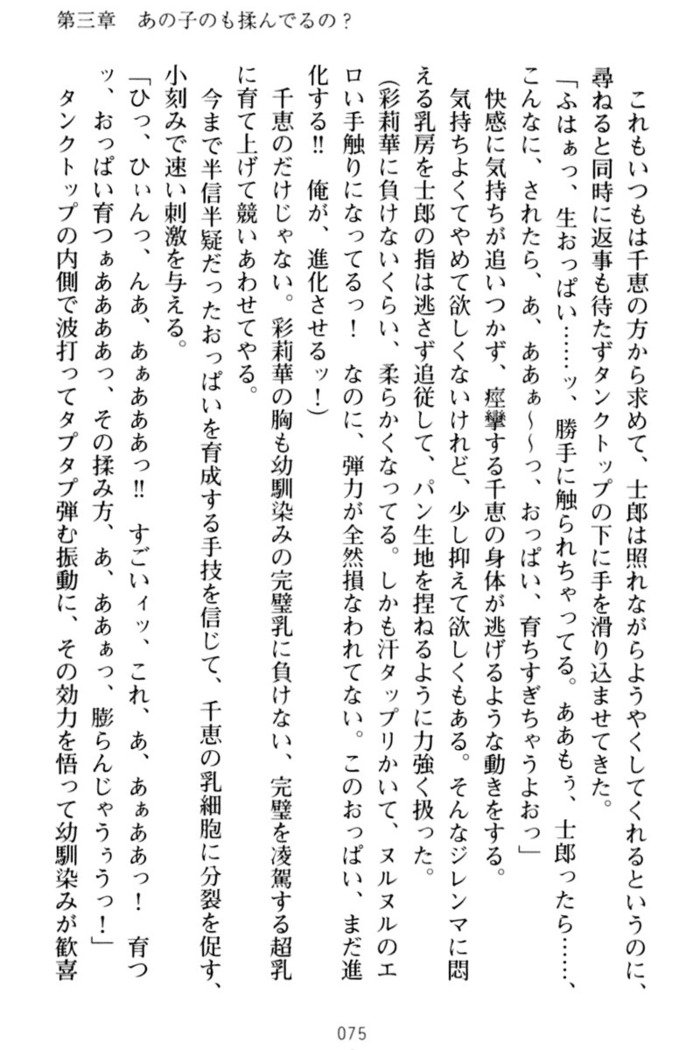 第三章　あの子のも揉んでるの？
これもいつもは千恵の方から求めて、士郎は照れながらようやくしてくれるというのに、
尋ねると同時に返事も待たずタンクトップの下に手を滑り込ませてきた。
「ふはぁっ、生おっぱい……ッ、勝手に触られちゃってる。ああもぅ、士郎ったら……、
こんなに、されたら、あ、ああぁ～～っ、おっぱい、育ちすぎちゃうよおっ」
快感に気持ちが追いつかず、痙攣する千恵の身体が逃げるような動きをする。
気持ちよくてやめて欲しくないけれど、少し抑えて欲しくもある。そんなジレンマに悶
える乳房を士郎の指は逃さず追従して、パン生地を捏ねるように力強く扱った。
（彩莉華に負けないくらい、柔らかくなってる。しかも汗タップリかいて、ヌルヌルのエ
ロい手触りになってるっ！　なのに、弾力が全然損なわれてない。このおっぱい、まだ進
化する!!　俺が、進化させるッ！）
千恵のだけじゃない。彩莉華の胸も幼馴染みの完璧乳に負けない、完璧を凌駕する超乳
に育て上げて競いあわせてやる。
今まで半信半疑だったおっぱいを育成する手技を信じて、千恵の乳細胞に分裂を促す、
小刻みで速い刺激を与える。
「ひっ、ひぃんっ、んあ、あぁあああっ!!　すごいィッ、これ、あ、あぁああっ！　育つ
ッ、おっぱい育つぁああああっ、その揉み方、あ、ああぁっ、膨らんじゃうぅうっ！」
タンクトップの内側で波打ってタプタプ弾む振動に、その効力を悟って幼馴染みが歓喜
075